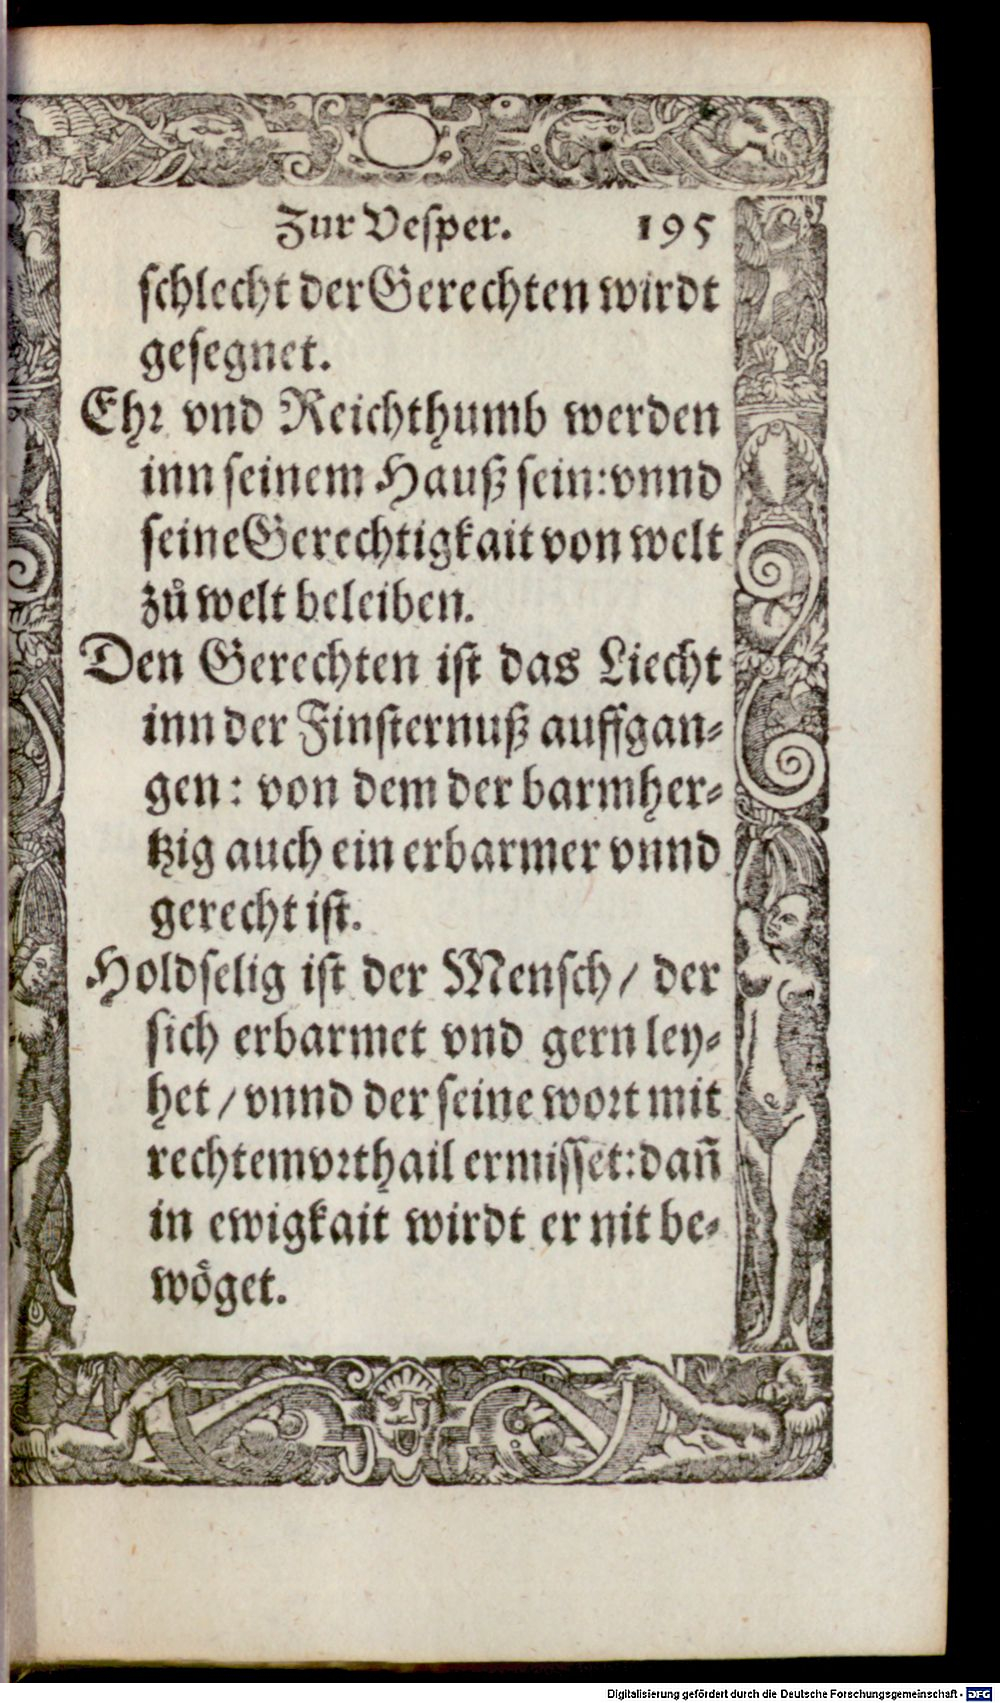 Zur Vesper. 195
schlecht der Gerechten wirdt
gesegnet.
Ehr vnd Reichthumb werden
inn seinem Hauß sein: vnnd
seine Gerechtigkait von welt
zů welt beleiben.
Den Gerechten ist das Liecht
inn der Finsternuß auffgan⸗
gen: von dem der barmher⸗
tzig auch ein erbarmer vnnd
gerecht ist.
Holdselig ist der Mensch / der
sich erbarmet vnd gern ley⸗
het / vnnd der seine wort mit
rechtem vrthail ermisset: dañ
in ewigkait wirdt er nit be⸗
wöget.
Digitalisierung gefördert durch die Deutsche Forschungsgemeinschaft - DFG